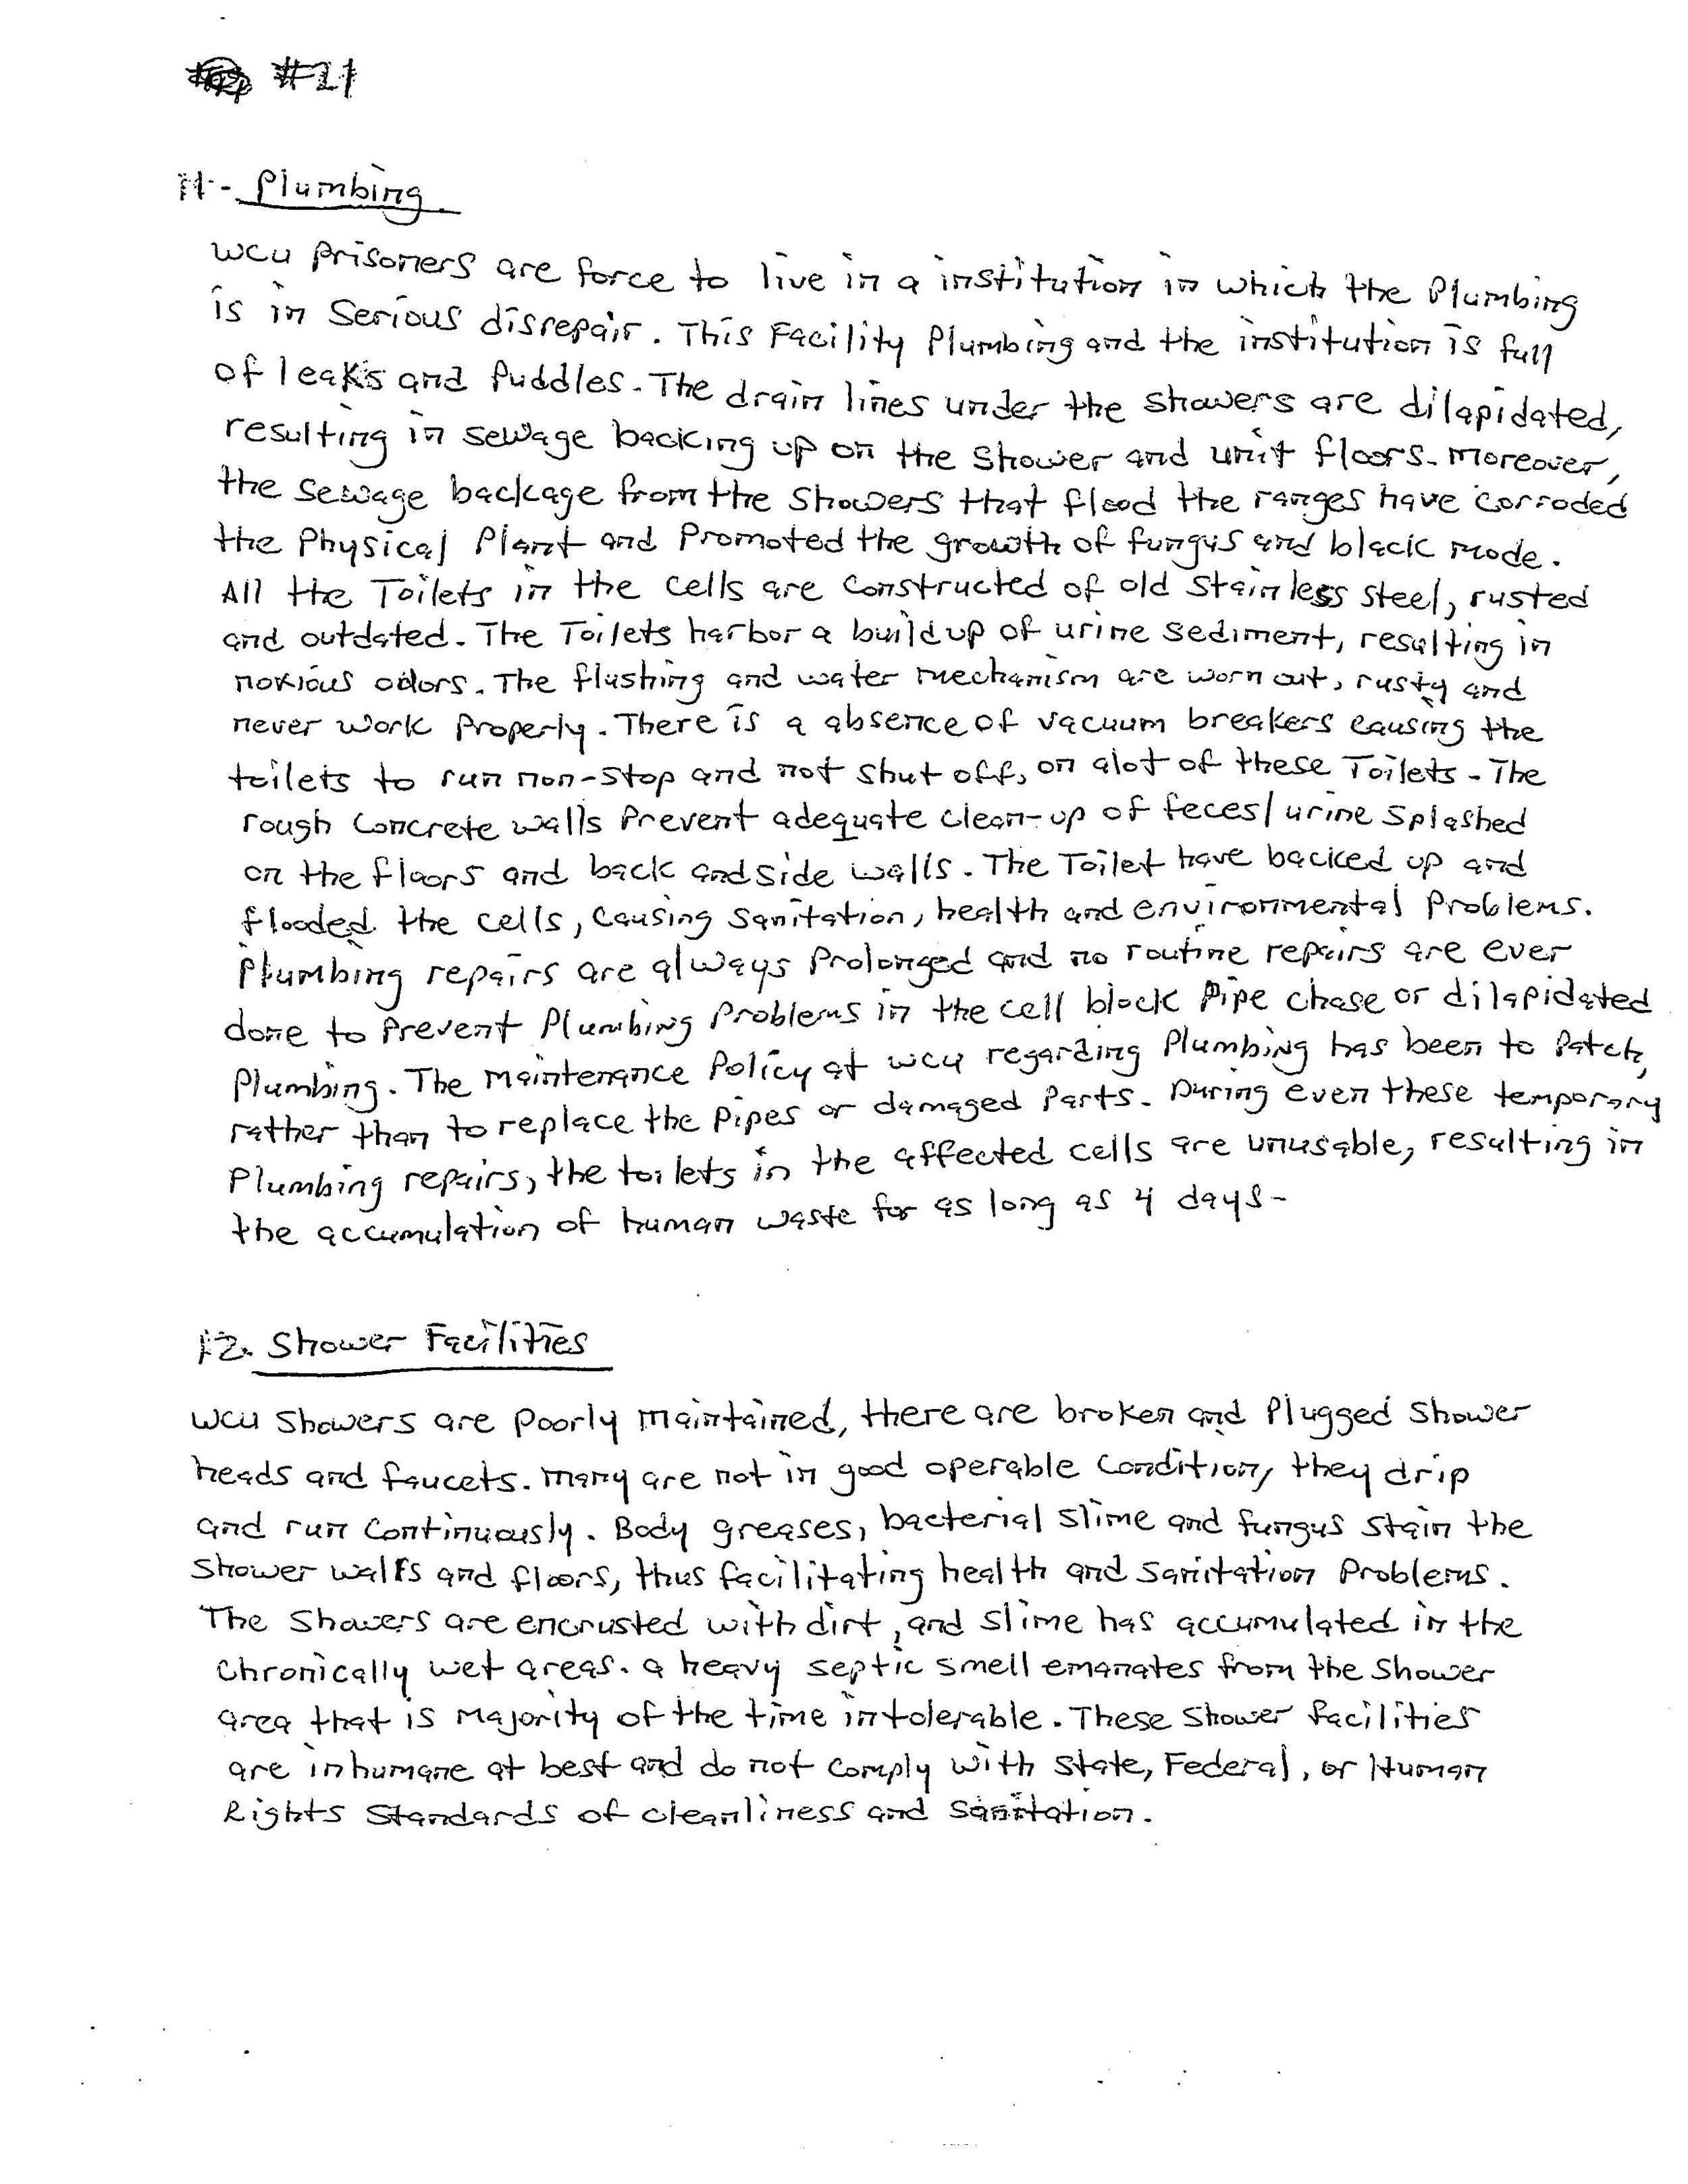 #21
11- Plumbing
WCU Prisoners are force to live in a institution in which the Plumbing
is in Serious disrepair. This Facility Plumbing and the institution is full
of leaks and Puddles. The drain lines under the showers are dilapidated,
resulting in sewage backing up on the shower and unit floors. Moreover,
the sewage backage from the showers that flood the ranges have corroded
the Physical Plant and Promoted the growth of fungus and black mode.
All the Toilets in the cells are constructed of old stainless steel, rusted
and outdated. The Toilets harbor a buildup of urine sediment, resulting in
noxious odors. The flushing and water mechanism are worn out, rusty and
never work Properly. There is a absence of vacuum breakers causing the
toilets to run non-stop and not shut off, on alot of these Toilets - The
rough concrete walls Prevent adequate clean-up of feces/urine splashed
on the floors and back and side walls. The Toilet have backed up and
flooded the cells, causing sanitation, health and environmental Problems.
Plumbing repairs are always Prolonged and no routine repairs are ever
done to Prevent Plumbing Problems in the cell block Pipe chase or dilapidated
Plumbing. The Maintenance Policy at WCU regarding Plumbing has been to Patch,
rather than to replace the Pipes or damaged Parts. During even these temporary
Plumbing repairs, the toilets in the affected cells are unusable, resulting in
the accumulation of human waste for as long as 4 days-
12. Shower Facilities
WCU Showers are Poorly Maintained, there are broken and Plugged Shower
heads and faucets. Many are not in good operable condition, they drip
and run continuously. Body greases, bacterial slime and fungus stain the
shower walls and floors, thus facilitating health and sanitation Problems.
The Showers are encrusted with dirt, and slime has accumulated in the
chronically wet areas. a heavy septic smell emanates from the shower
area that is Majority of the time intolerable. These Shower facilities
are inhumane at best and do not comply with State, Federal, or Human
Rights Standards of cleanliness and sanitation.